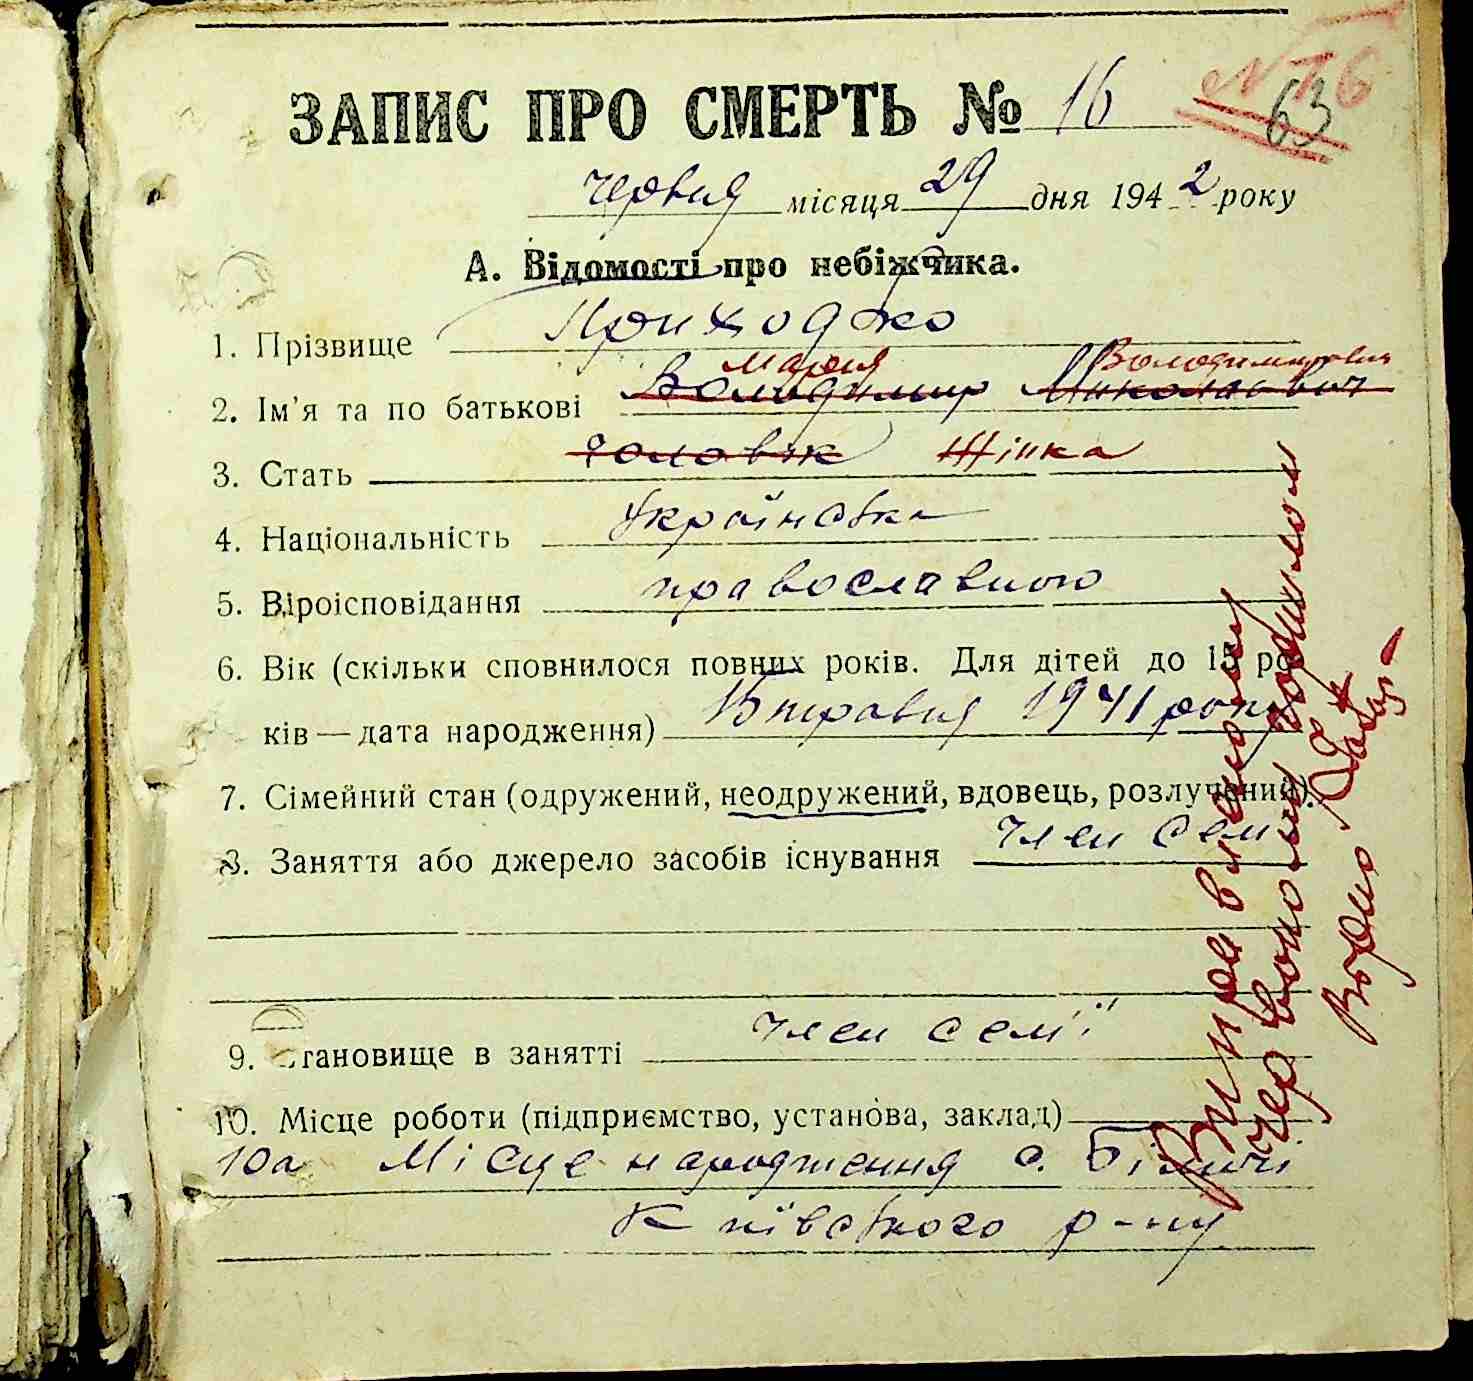 ЗАПИС ПРО СМЕРТЬ № 16
№ 16
63
червня місяця 29 дня 1942 року
А. Відомості про небіжчика.
1. Прізвище Приходько
Мария Володимировна
2. Ім'я та по батькові Володимир Миколаєвич
3. Стать чоловік Жінка
4. Національність українська
5. Віроісповідання православною
6. Вік (скільки сповнилося повних років. Для дітей до 15 ро-
ків — дата народження) 15 травня 1941 року
7. Сімейний стан (одружений, неодружений, вдовець, розлучений).
8. Заняття або джерело засобів існування член семї
9. Становище в занятті член семї
10. Місце роботи (підприємство, установа, заклад)
10а Місце народження с. Біличі
Київського р-ну
Виправленому
червоним чорнилом
Вірно